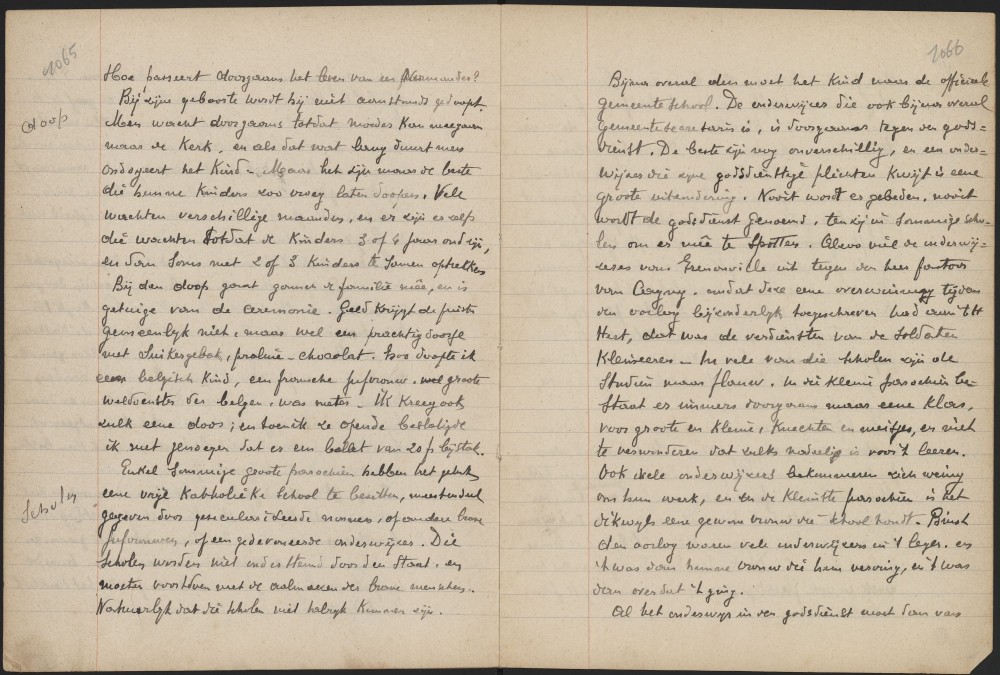 1065
Hoe passeert doorgaans het leven van een Normander?
Bij zijne geboorte wordt hij niet aanstonds gedoopt.
doop
Men wacht doorgaans totdat moeder kan meegaan
naar de Kerk, en als dat wat lang duurt men
ondoopeert het Kind - Maar het zijn maar de beste
die hunne Kinders zoo vroeg laten doopen. Vele
wachten verschillige maanden, en er zijn er zelfs
die wachten totdat de Kinders 3 of 4 jaar oud zijn,
en dan soms met 2 of 3 Kinders te samen optrekken
Bij den doop gaat gansch de familie mêe, en is
getuige van de ceremonie. Geld krijgt de priester
gemeenlijk niet, maar wel een prachtig doosje
met suikergebak, praline - chocolat. Zoo doopte ik
een belgisch Kind, een fransche jufvrouw, wel groote
weldoenster der belgen, was meter - Ik kreeg ook
zulk eene doos; en toen ik ze opende bestatigde
ik met genoegen dat er een billet van 20 fr bijstak.
Enkel sommige groote parochien hebben het geluk
eene vrije Katholieke school te bezitten, meestendeel
Scholen
gegeven door geseculariseerde nonnen, of andere brave
jufvrouwen, of een gedevoueerde onderwijzer. Die
scholen worden niet ondersteund door den staat, en
moeten voortdoen met de aalmoezen der brave menschen.
Natuurlijk dat die scholen niet talrijk kunnen zijn.
1066
Bijna overal elders moet het Kind naar de officieele
gemeenteschool. De onderwijzer die ook bijna overal
gemeentesecretaris is, is doorgaans tegen den gods-
dienst. De beste zijn nog onverschillig, en een onder-
wijzer die zijne godsdienstige plichten kwijt is eene
groote uitzondering. Nooit wordt er gebeden, nooit
wordt de godsdienst genoemd, tenzij in sommige scho-
len om er mêe te spotten. Alzoo viel de onderwij-
zeres van Grenonville uit tegen den heer pastoor
van Cagny, omdat deze eene overwinning tijdens
den oorlog bijzonderlijk toegeschreven had aan 't H
Hert, dat was de verdiensten van de soldaten
Kleineeren - In vele van die scholen zijn de
studien maar flauw. In die kleine parochien be-
staat er immers doorgaans maar eene klas,
voor groote en kleine, Knechten en meisjes, en niet
te verwonderen dat zulks nadeelig is voor 't leeren.
Ook vele onderwijzers bekommeren zich weinig
om hun werk, en in de kleinste parochien is het
dikwijls eene gewone vrouw die school houdt. Binst
den oorlog waren vele onderwijzers in 't leger, en
't was dan hunne vrouw die hun verving, en 't was
dan over dat 't ging.
Al het onderwijs in den godsdienst moet dan van